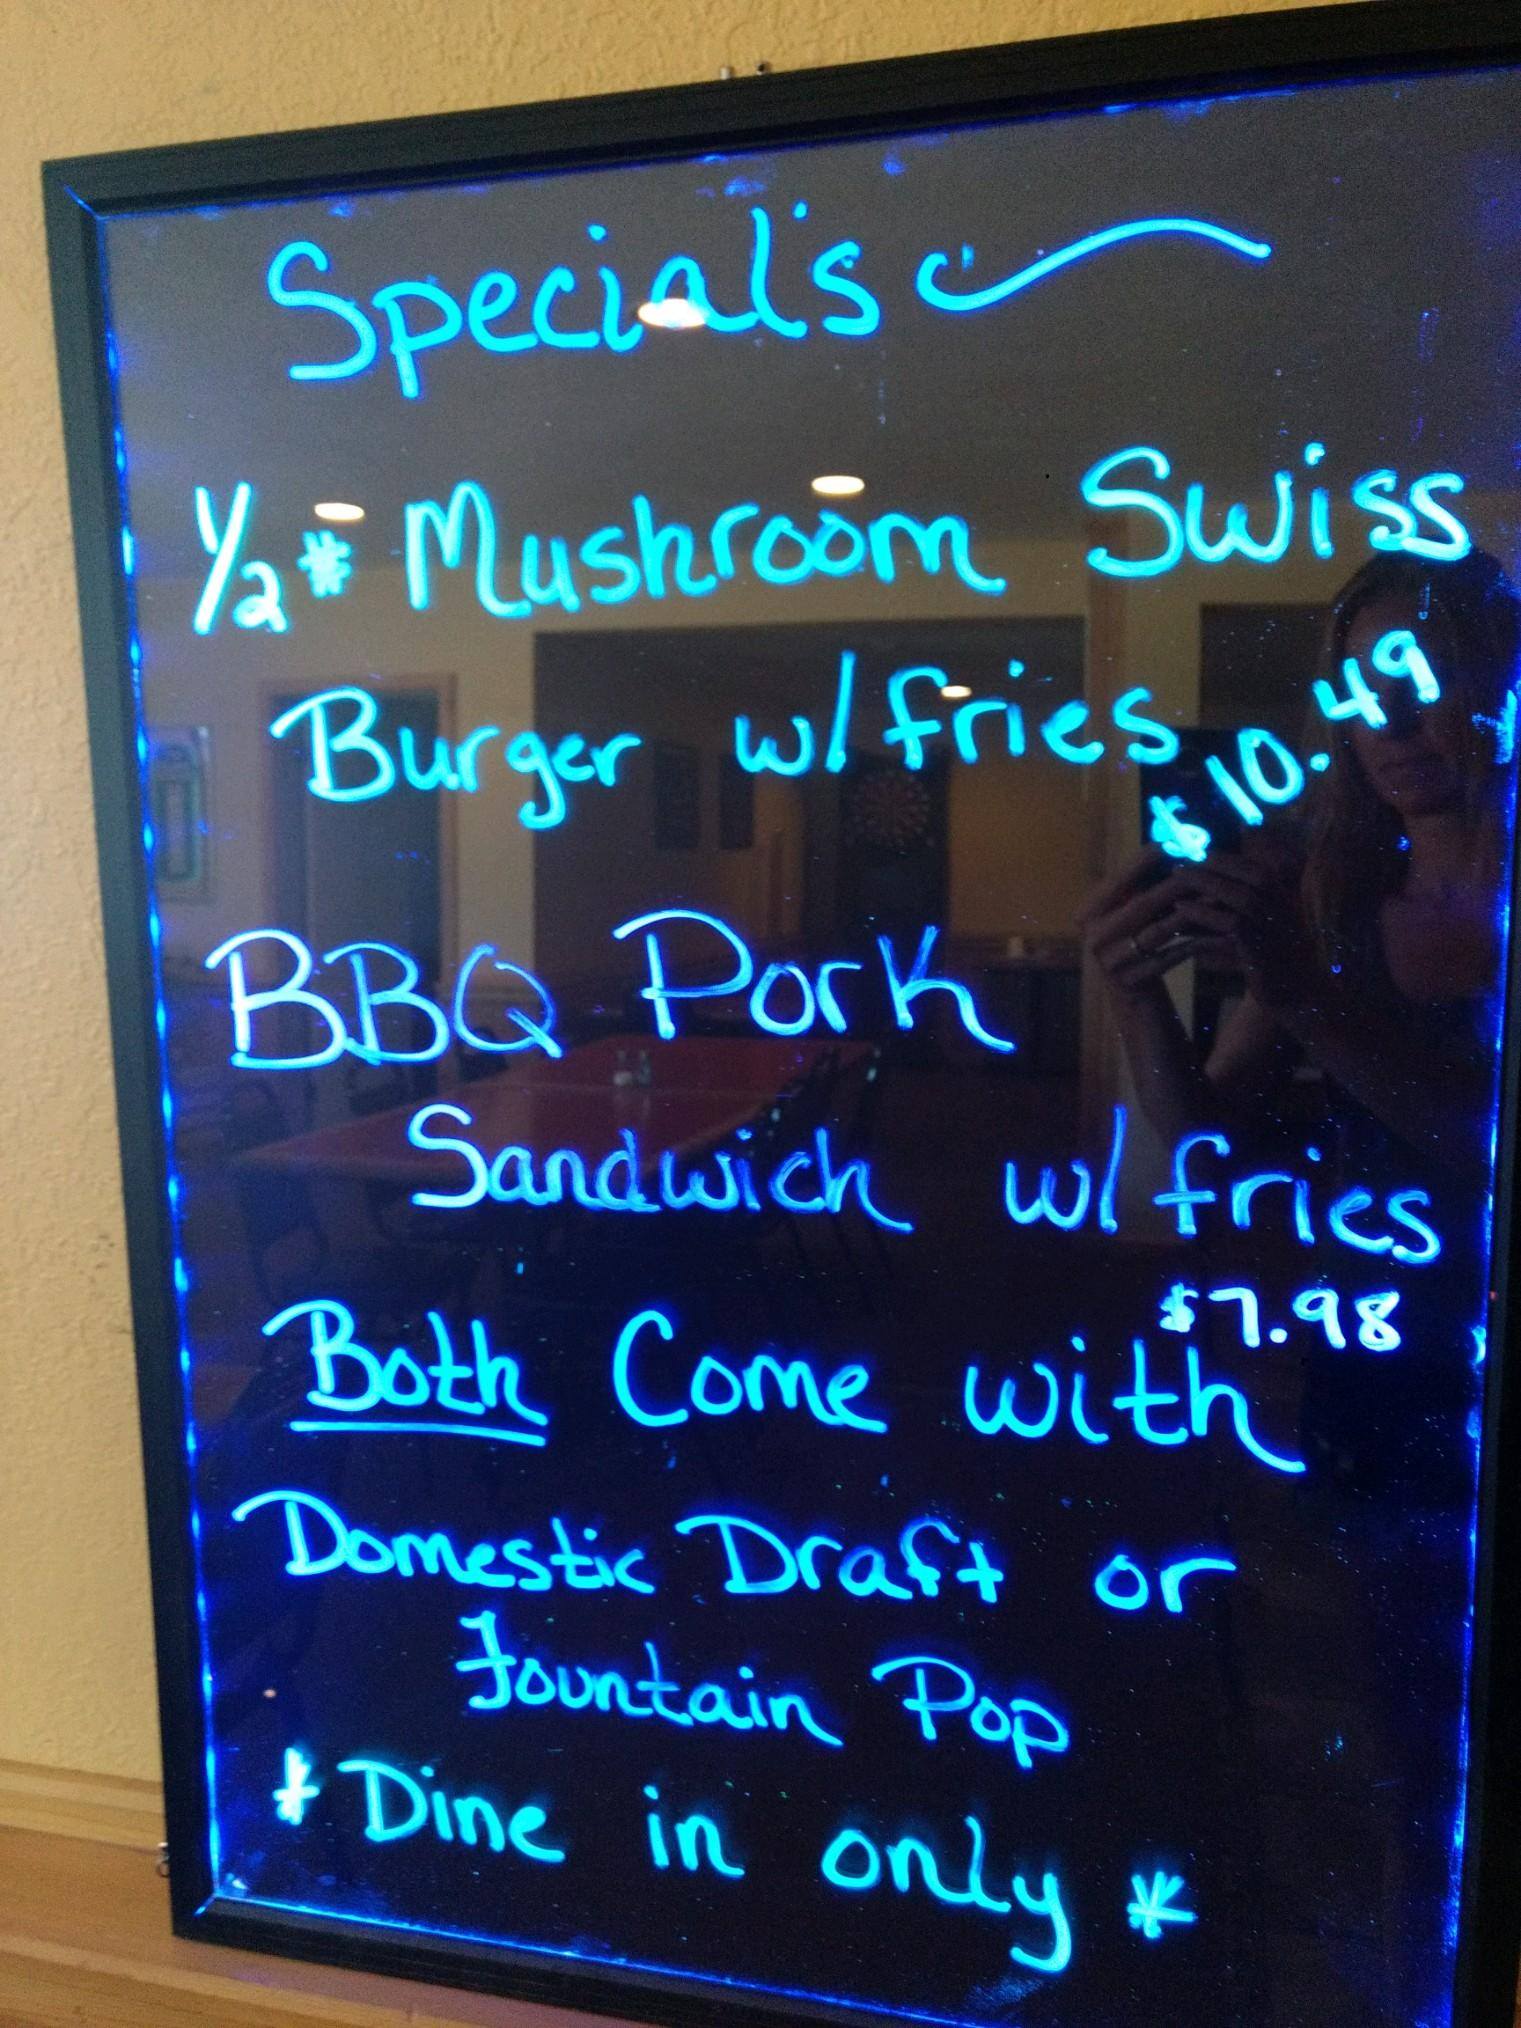 Special's
1/2 # Mushroom Swiss
Burger w/ fries $10.49
BBQ Pork
Sandwich w/ fries
$7.98
Both Come with
Domestic Draft or
Fountain Pop
* Dine in only *